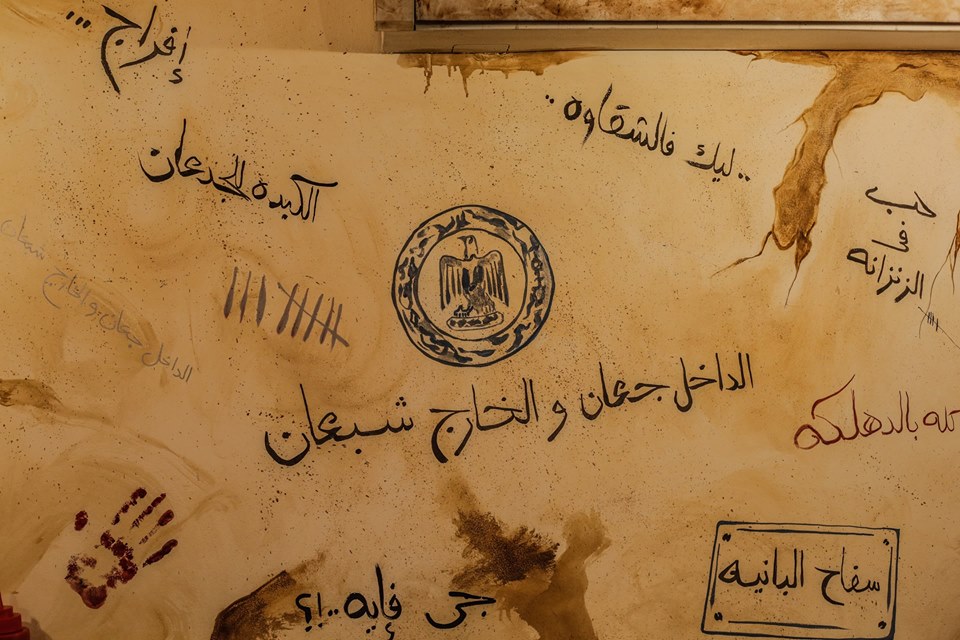 إفراج...
..ليك فالشقاوه..
الكبده للجدعان
حب
في
الزنزانه
الداخل جعان و الخارج شبعان
الداخل جعان و الخارج شبعان
بالدهلكه
سفاح البانيه
جى فإيه..!؟